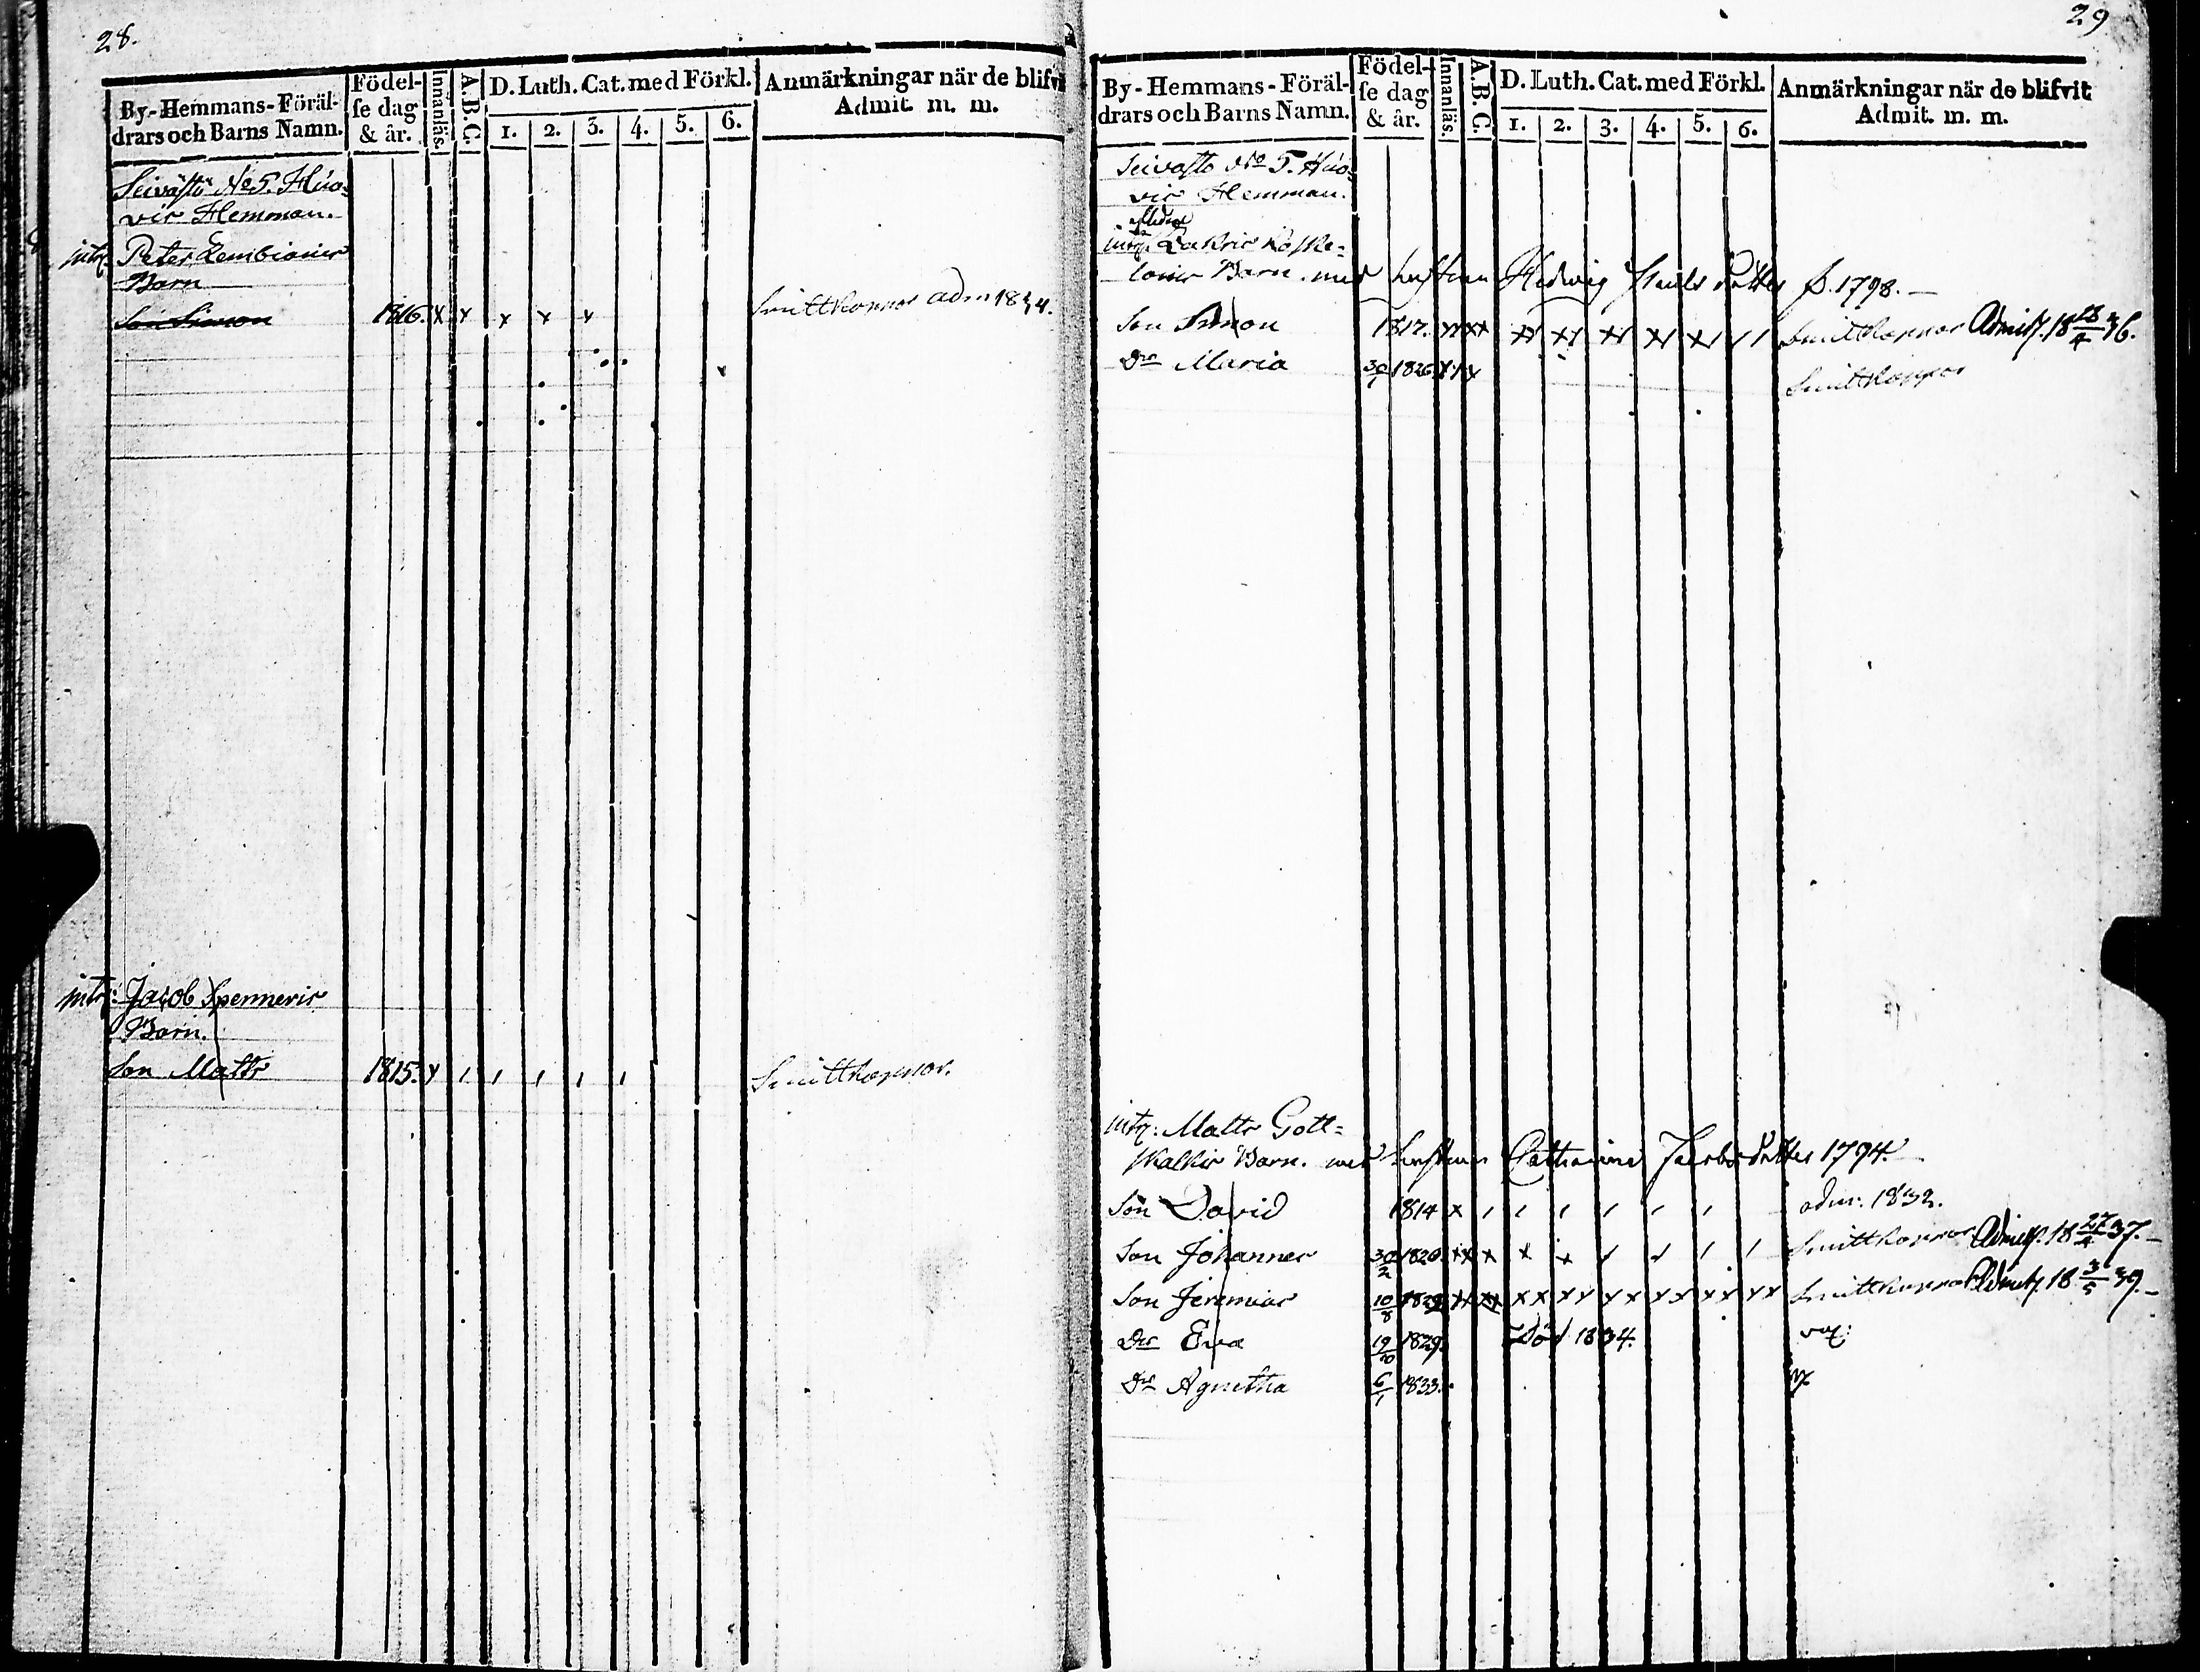 28.
By-Hemmans-Föräl-
drars och Barns Namn.
Födel-
se dag
& år.
Innanläs.
A.B.C.
D. Luth. Cat. med Förkl.
1. 2. 3. 4. 5. 6.
Anmärkningar när de blifvi
Admit. m. m.
Seivästö No 5. Huo-
vis Hemman.
intg. Peter Lembiainis
Barn
Son Simon 1816. x x x x x Smittkoppor adm 1834.
intg: Jacob Spenneris
Barn.
Son Matts 1815. x Smittkoppor.
29
By-Hemmans-Föräl-
drars och Barns Namn.
Födel-
se dag
& år.
Innanläs.
A.B.C.
D. Luth. Cat. med Förkl.
1. 2. 3. 4. 5. 6.
Anmärkningar när de blifvit
Admit. m. m.
Seivästö No 5. Huo-
vis Hemman.
intg.
Barn. med hustrun Hedvig Pauls dotter f. 1798.
Son Simon 1817. Smittkoppor Admitt. 18 28/4 36.
Dr Maria 30/1 1826. Smittkoppor
intg: Matts Gott-
skalkis Barn. med hustrun Catharina Jacobs dotter 1794.
Son David 1814 x adm: 1832.
Son Johannes 30/2 1820. Smittkoppor Admitt. 18 27/4 37.
Son Jeremias 10/8 Smittkoppor Admitt. 18 3/5 39.
Dr Eva 19/10 1829. Död 1834. vac:
Dr Agnetha 6/1 1833.